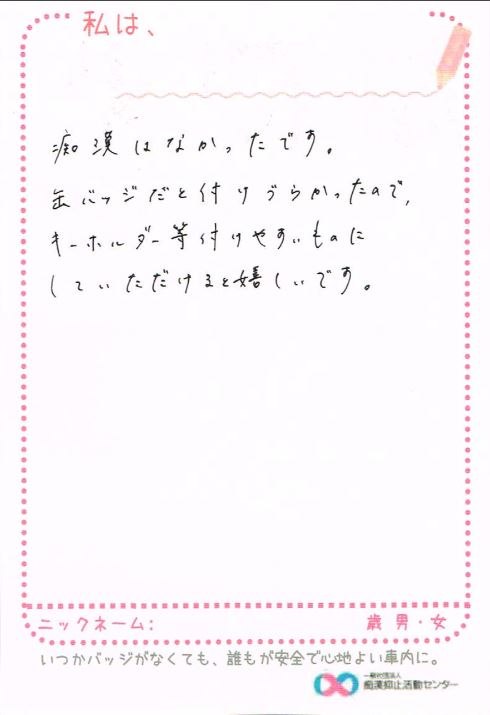 私は、
痴漢はなかったです。
缶バッジだと付けづらかったので、
キーホルダー等付けやすいものに
していただけると嬉しいです。
ニックネーム: 歳 男・女
いつかバッジがなくても、誰もが安全で心地よい車内に。
一般社団法人
痴漢抑止活動センター